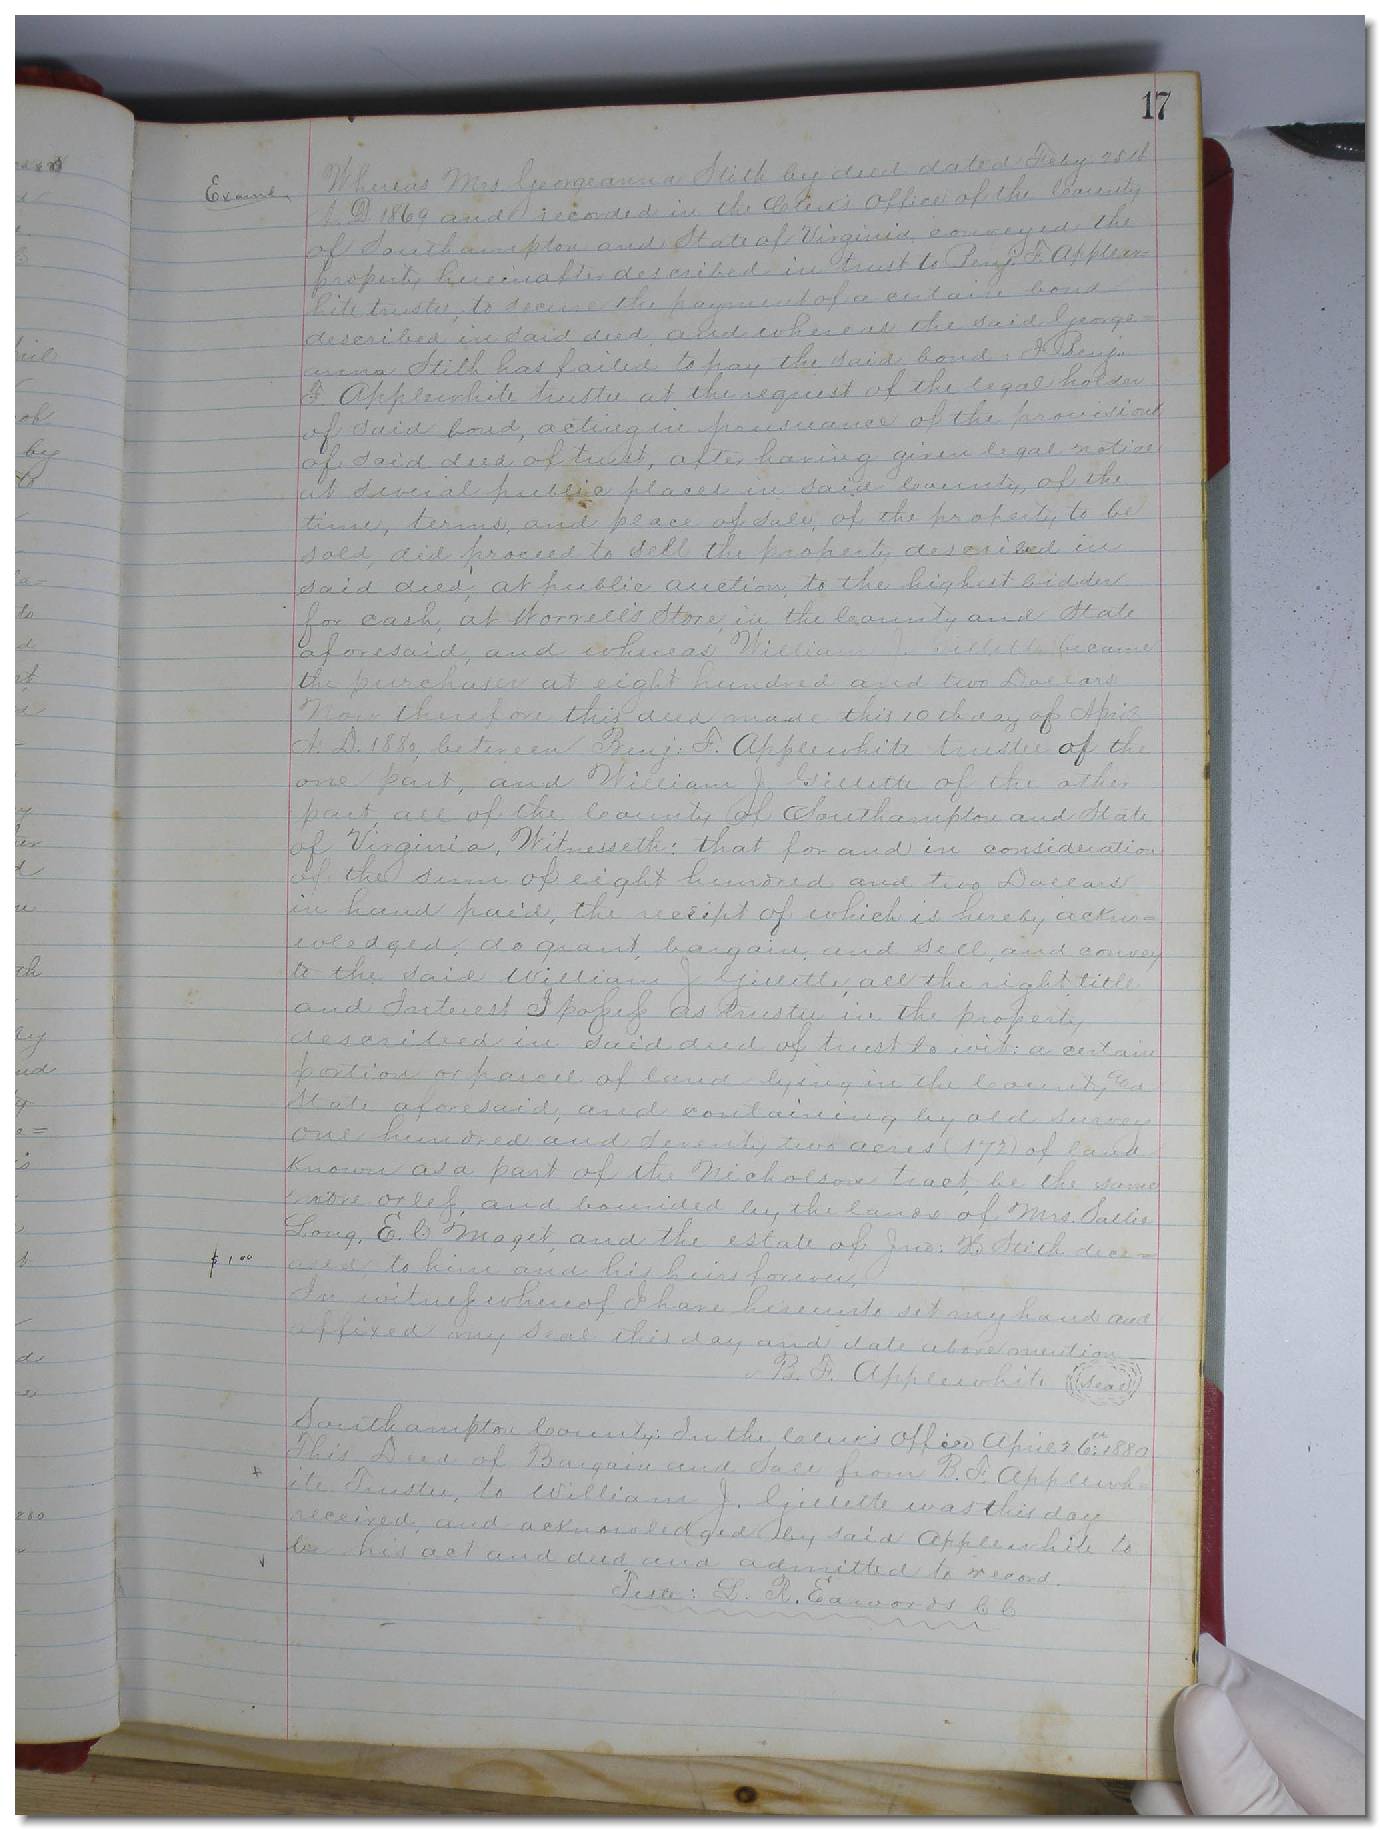 17
Exam
Whereas Mrs Georgeanna Stith by deed dated Feby 25th
A. D 1869 and recorded in the Clerk's Office of the County
of Southampton and State of Virginia, conveyed the
property hereinafter described in trust to Benj. F. Applew-
hite trustee, to secure the payment of a certain bond
described in said deed, and whereas the said George=
anna Stith has failed to pay the said bond: I Benj.
F Applewhite trustee at the request of the legal holder
of said bond, acting in pursuance of the provisions
of said deed of trust, after having given legal notice
at several public places in said County, of the
time, terms, and place of sale, of the property to be
sold, did proceed to sell the property described in
said deed, at public auction, to the highest bidder
for cash, at Worrell's Store, in the County and State
aforesaid, and whereas William J. Gillette became
the purchaser at eight hundred and two Dollars
Now therefore this deed made this 10th day of April
A. D. 1880, between Benj: F. Applewhite trustee of the
one part, and William J Gillette of the other
part, all of the County of Southampton and State
of Virginia, Witnesseth: that for and in consideration
of the sum of eight hundred and two Dollars
in hand paid, the receipt of which is hereby ackno=
wledged, do grant, bargain, and sell, and convey
to the said William J Gillette, all the right, title
and Interest I possess as trustee in the property
described in said deed of trust to wit: a certain
portion or parcel of land lying in the County and
State aforesaid, and containing by old survey
one hundred and seventy two acres (172) of land
Known as a part of the Nicholson tract, be the same
more or less, and bounded by the lands of Mrs. Sallie
Long, E. C Maget, and the estate of Jno: Stith dece=
ased, to him and his heirs forever,
$1.00
In witness whereof I have hereunto set my hand and
affixed my Seal this day and date above mention
B. F. Applewhite Seal
Southampton County: In the Clerk's Office April 26th 1880
This Deed of Bargain and Sale from B. F. Applewh-
ite Trustee, to William J. Gillette was this day
received, and acknowledged by said Applewhite to
be his act and deed and admitted to record.
Teste: L. R. Edwards C C